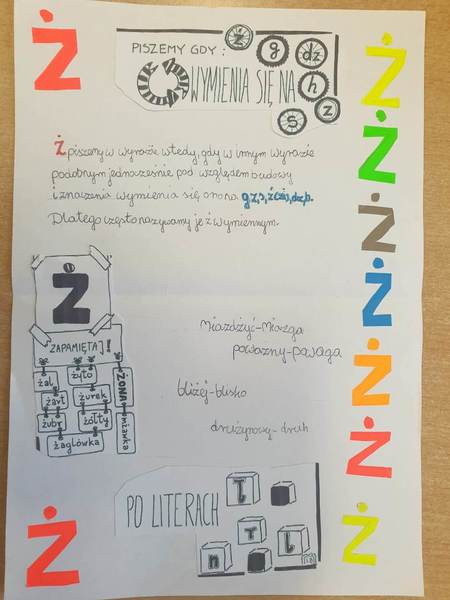 Ż
PISZEMY GDY:
ż g dz
WYMIENIA SIĘ NA h
s z
Ż piszemy w wyrazie wtedy, gdy w innym wyrazie
podobnym jednocześnie pod względem budowy
i znaczenia wymienia się ono na g,z,s,
Dlatego często nazywamy je ż wymiennym.
Ż
ZAPAMIĘTAJ!
żal żyto ŻONA
żart żurek
żubr żółty mżawka
żaglówka
miażdżyć-miazga
poważny-powaga
bliżej-blisko
drużynowy-druh
PO LITERACH
n l
Ż
Ż
Ż
Ż
Ż
Ż
Ż
Ż
Ż